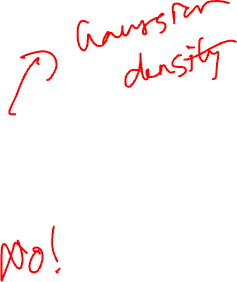 Gaussian
density
No!